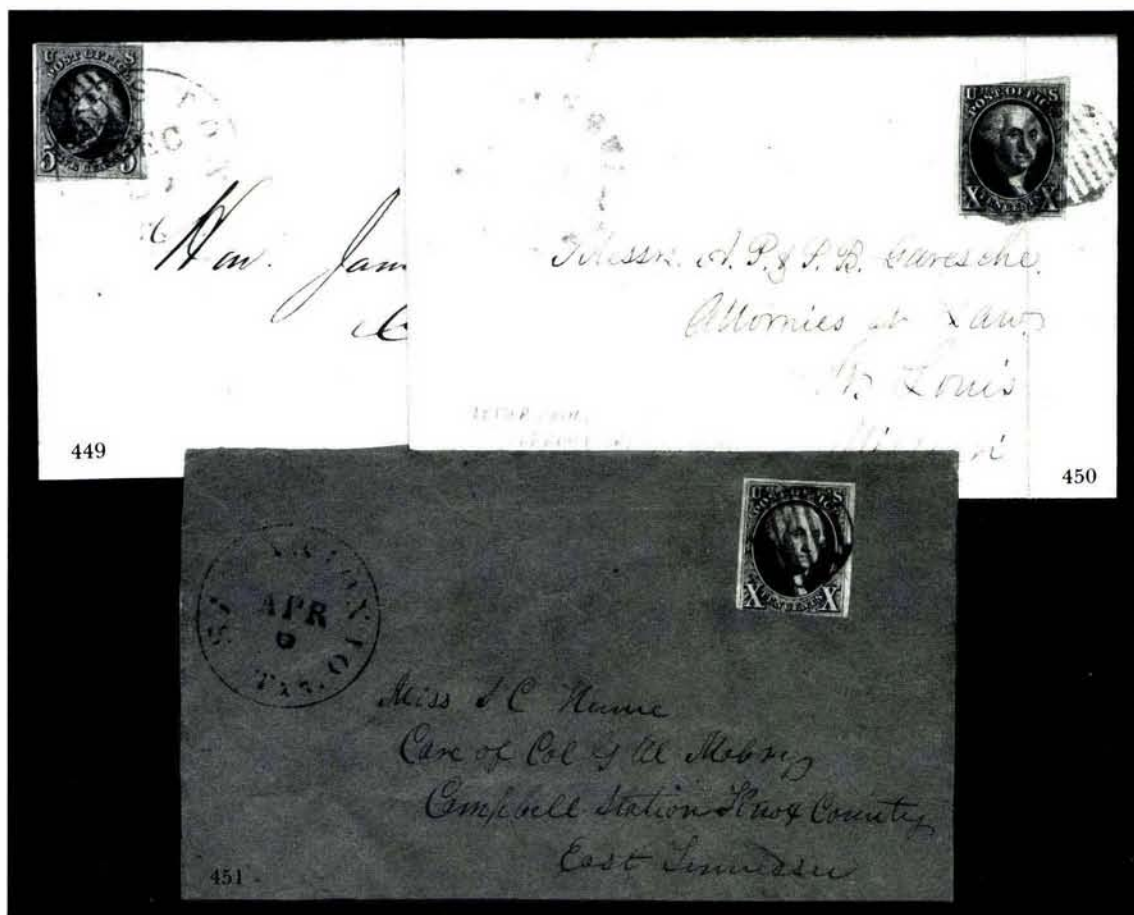 U S
POST OFFICE
5 5
EC
Hon. Jam
449
U S
POST OFFICE
X TEN CENTS X
Messrs. A. P. & P. B. Garesche.
Attornies at Law
St. Louis
450
U S
POST OFFICE
X TEN CENTS X
SAN ANTONIO
APR
TEX
Miss
Care of Col
Campbell Station Knox County
East Tennessee
451